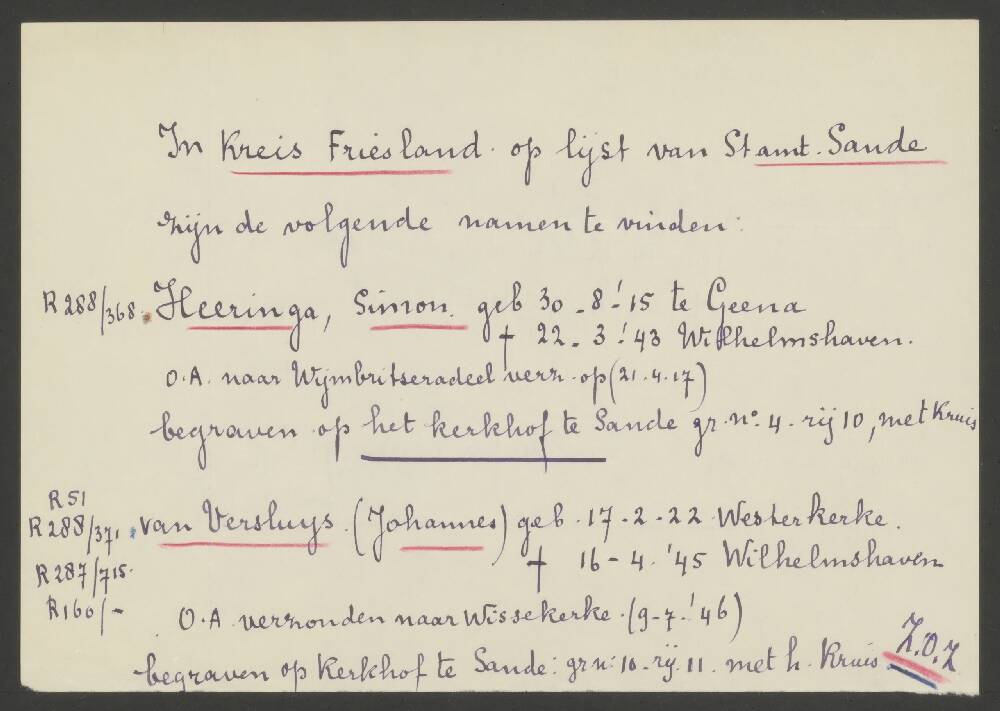 In Kreis Friesland op lijst van Stamt. Sande
zijn de volgende namen te vinden:
R 288/368. Heeringa, Simon. geb 30-8-'15 te Geena
† 22-3-'43 Wilhelmshaven.
O.A. naar Wijmbritseradeel verz. op (21.4.17)
begraven op het kerkhof te Sande gr. no. 4. rij 10, met Kruis
R 51
R 288/371. van Versluys. (Johannes) geb. 17-2-22 Westerkerke.
R 287/715. † 16-4-'45 Wilhelmshaven
R 160/- O.A. verzonden naar Wissekerke. (9-7-'46)
begraven op Kerkhof te Sande: gr n: 10. rij. 11. met h. Kruis. Z.O.Z